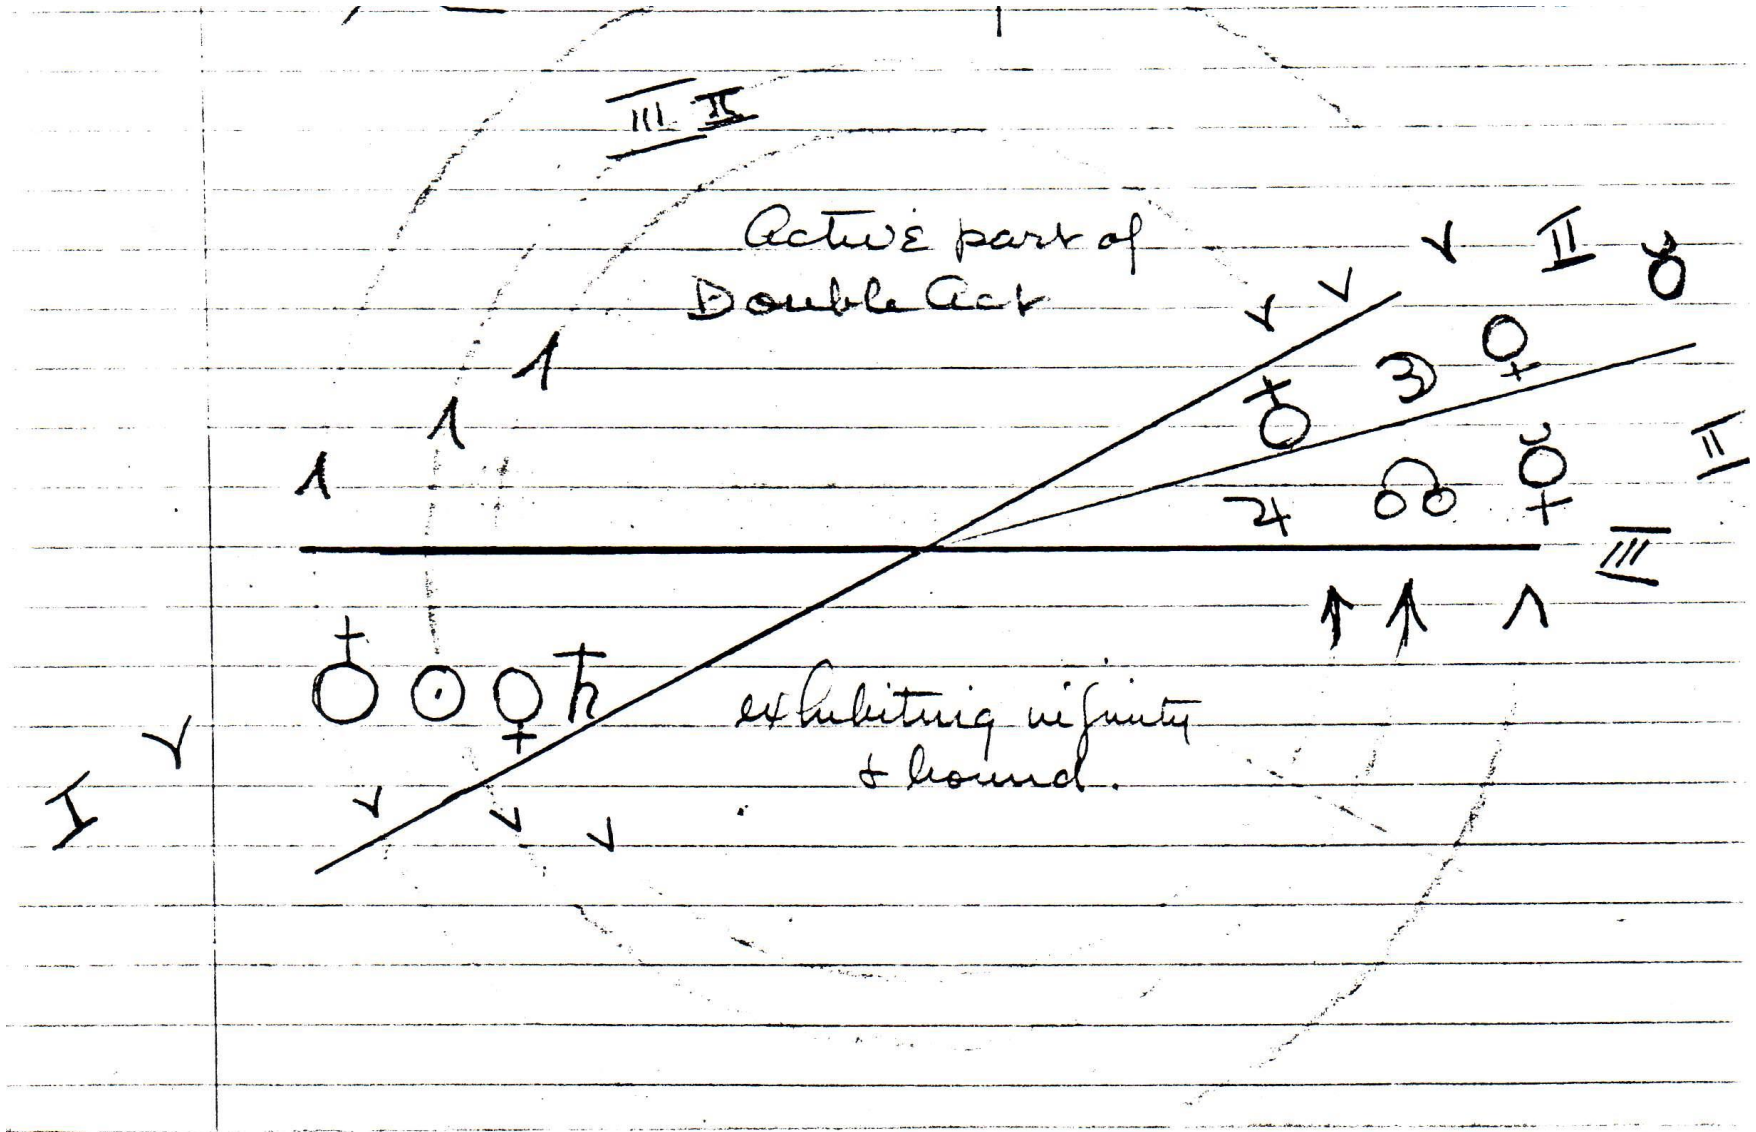 III II
Active part of
Double Act
II ♉
♁ ☽ ♀
II
♃ ☊ ☿
III
♁ ☉ ♀ ♄
exhibiting infinity
& bound.
I